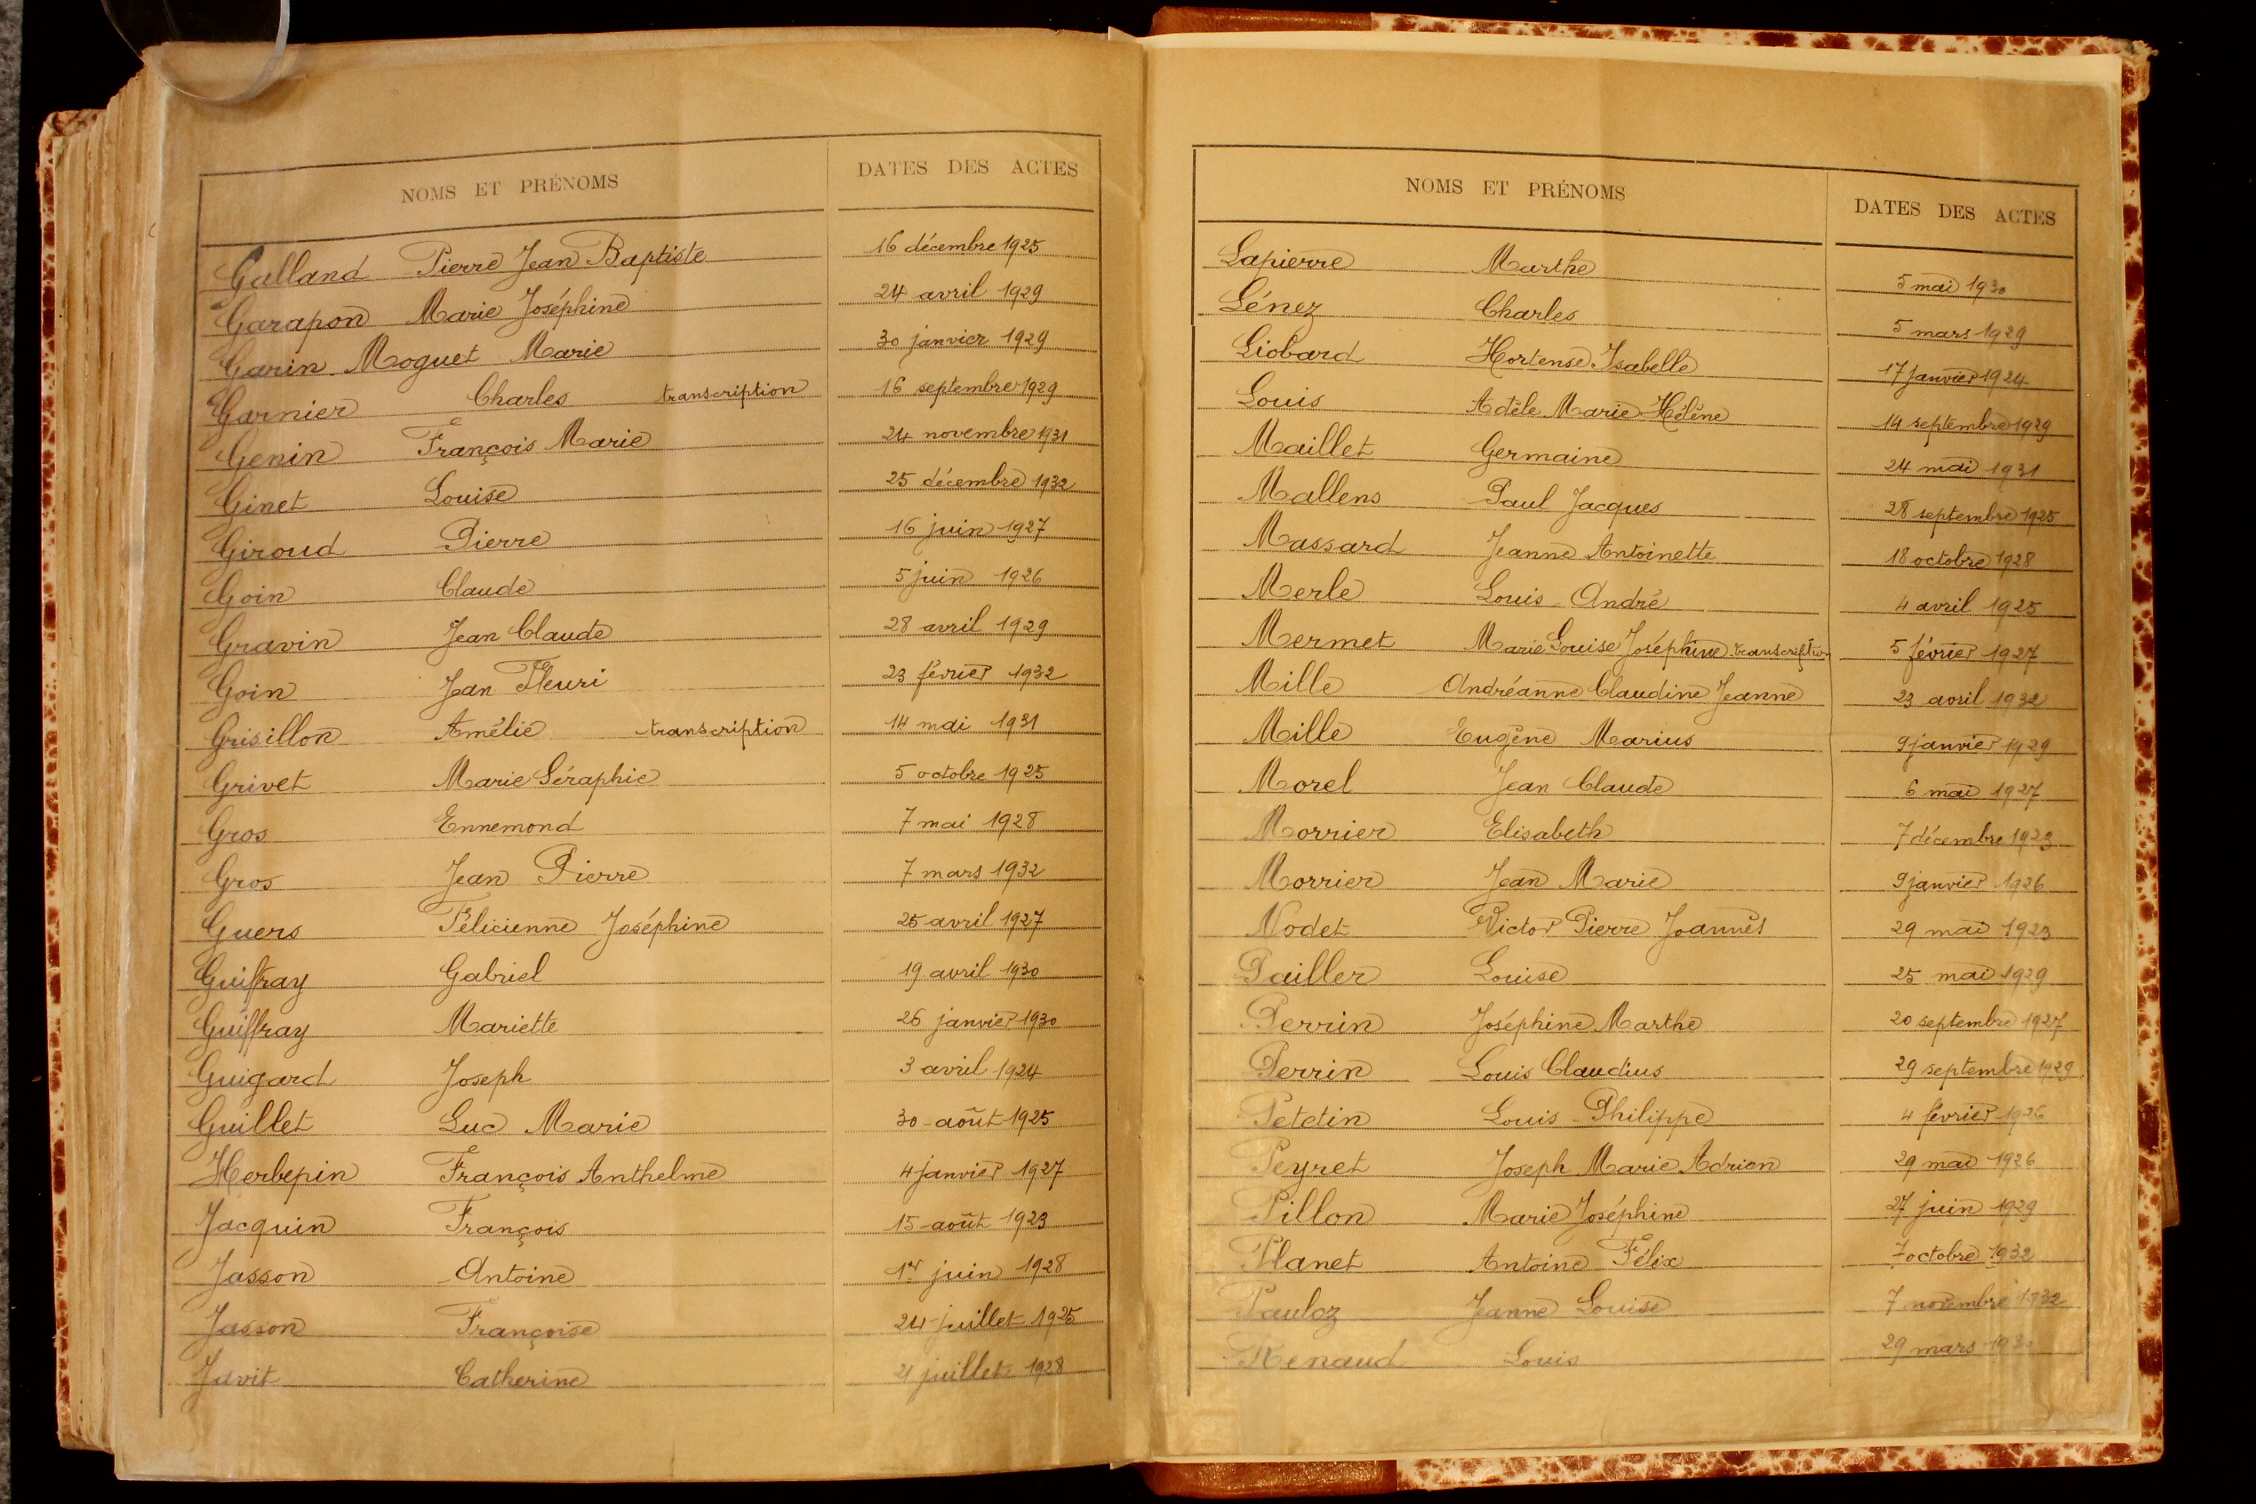 NOMS ET PRÉNOMS DATES DES ACTES
Galland Pierre Jean Baptiste 16 décembre 1925
Garapon Marie Joséphine 24 avril 1929
Garin Moguet Marie 30 janvier 1929
Garnier Charles transcription 16 septembre 1929
Genin François Marie 24 novembre 1931
Ginet Louise 25 décembre 1932
Giroud Pierre 16 juin 1927
Goin Claude 5 juin 1926
Gravin Jean Claude 28 avril 1929
Goin Jean Fleuri 23 février 1932
Grisillon Amélie transcription 14 mai 1931
Grivet Marie Séraphie 5 octobre 1925
Gros Ennemond 7 mai 1928
Gros Jean Pierre 7 mars 1932
Guers Félicienne Joséphine 25 avril 1927
Guiffray Gabriel 19 avril 1930
Guiffray Mariette 26 janvier 1930
Guigard Joseph 3 avril 1924
Guillet Luc Marie 30 août 1925
Herbepin François Anthelme 4 janvier 1927
Jacquin François 15 août 1923
Jasson Antoine 1er juin 1928
Jasson Françoise 24 juillet 1925
Javit Catherine 21 juillet 1928
NOMS ET PRÉNOMS DATES DES ACTES
Lapierre Marthe 5 mai 1930
Lénez Charles 5 mars 1929
Liobard Hortense Isabelle 17 janvier 1924
Louis Adèle Marie Hélène 14 septembre 1929
Maillet Germaine 24 mai 1931
Mallens Paul Jacques 28 septembre 1925
Massard Jeanne Antoinette 18 octobre 1928
Merle Louis André 4 avril 1925
Mermet Marie Louise Joséphine transcription 5 février 1927
Mille Andréanne Claudine Jeanne 23 avril 1932
Mille Eugène Marius 9 janvier 1929
Morel Jean Claude 6 mai 1927
Morrier Elisabeth 7 décembre 1923
Morrier Jean Marie 9 janvier 1926
Nodet Victor Pierre Joannès 29 mai 1923
Pailler Louise 25 mai 1929
Perrin Joséphine Marthe 20 septembre 1927
Perrin Louis Claudius 29 septembre 1929
Petetin Louis Philippe 4 février 1926
Peyret Joseph Marie Adrien 29 mai 1926
Pillon Marie Joséphine 27 juin 1929
Planet Antoine Félix 7 octobre 1932
Pauloz Jeanne Louise 7 novembre 1932
Renaud Louis 29 mars